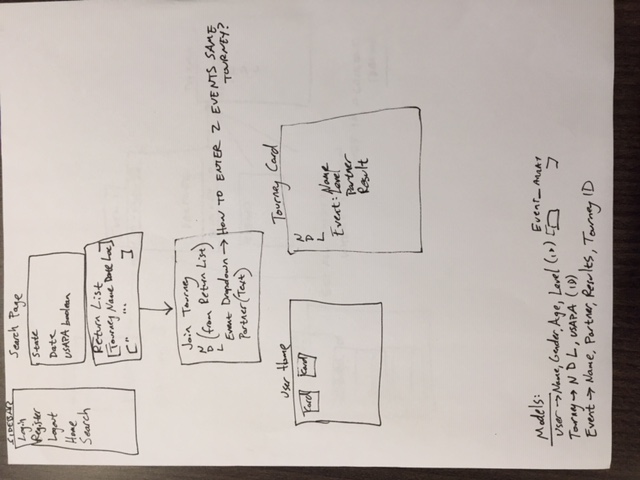 SIDEBAR
Login
Register
Logout
Home
Search
Search Page
State
Date
USAPA boolean
Return List
[Tourney Name Date Loc]
[" " ... ]
Join Tourney
N
D (from Return List)
L
Event Dropdown → HOW TO ENTER 2 EVENTS SAME
TOURNEY?
Partner (Text)
User Home
Card Card
Tourney Card
N
D
L
Event: Name
Level
Partner
Result
Models:
User → Name, Gender, Age, Level (ID)
Event_ARRAY
[ ]
Tourney → N D L, USAPA (ID)
Event → Name, Partner, Results, Tourney ID